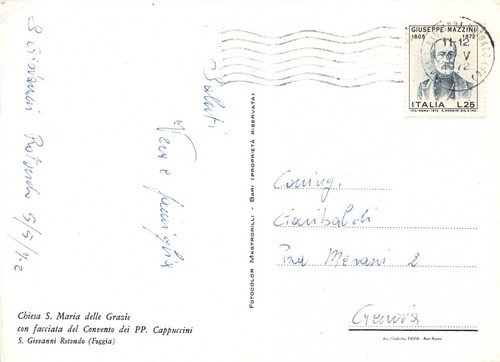 S. Giovanni Rotondo 5/5/72
Saluti
Vera e famiglia
Chiesa S. Maria delle Grazie
con facciata del Convento dei PP. Cappuccini
S. Giovanni Rotondo (Foggia)
FOTOCOLOR MASTRORILLI - BARI (PROPRIETÀ RISERVATA)
GIUSEPPE MAZZINI
1805 1872
ITALIA L.25
11-12
V
72
Garibaldi
2
Genova